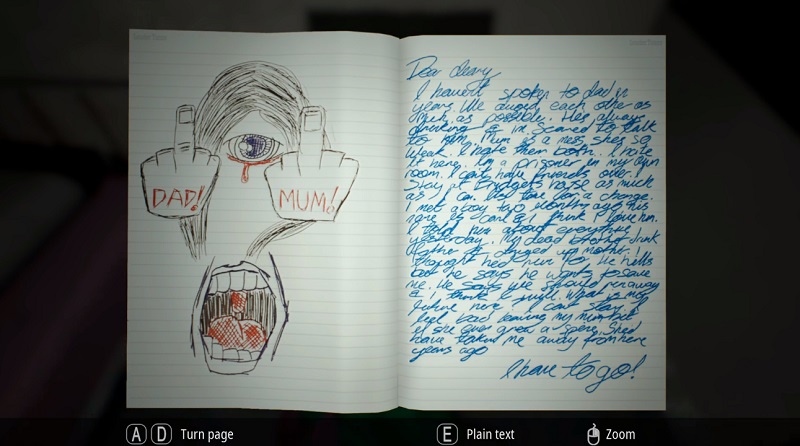 DAD!
MUM!
Dear diary
I haven't spoken to dad in
years. We avoid each other as
much as possible. He's always
drinking & I'm scared to talk
to him. Mum is a mess. She's so
weak. I hate them both. I hate
it here. I'm a prisoner in my own
room. I can't have friends over. I
stay at Bridgets house as much
as I can.
I met a boy two months ago. His
name is Carl & I think I love him.
I told him about everything
yesterday. My dead brother, drunk
father &
thought he'd run for the hills
but he says he wants to save
me. He says we should run away
& I think I will. What is my
future here? I can't stay. I
feel bad leaving my mum but
if she ever grew a spine she'd
have taken me away from here
years ago
I have to go!
A D Turn page
E Plain text
Zoom